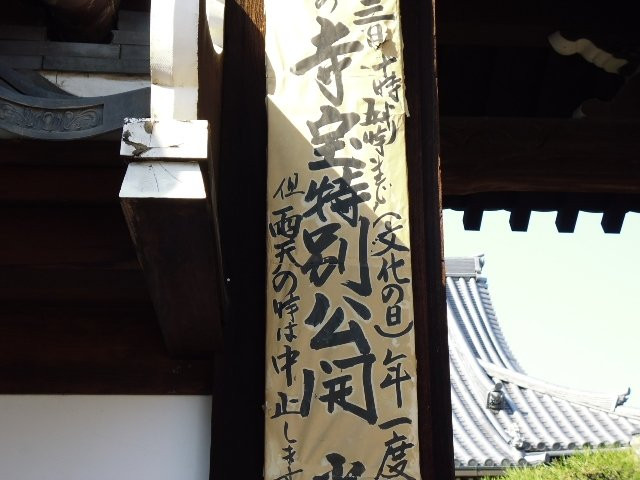 三日十時 時まで(文化の日)年一度
の寺宝特別公開
但雨天の時は中止します